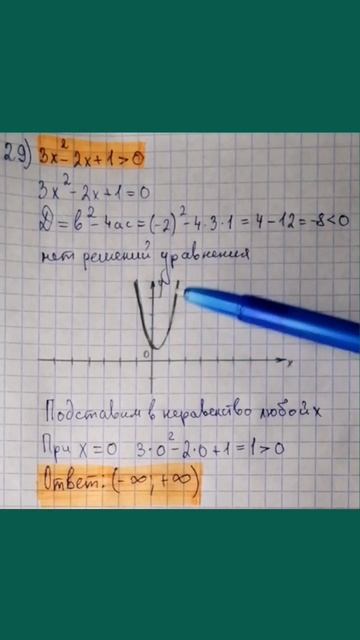 29) 3x²-2x+1>0
3x²-2x+1=0
D=b²-4ac=(-2)²-4·3·1=4-12=-8<0
нет решений уравнения
y
0
x
Подставим в неравенство любой x
При x=0 3·0²-2·0+1=1>0
Ответ: (-∞; +∞)